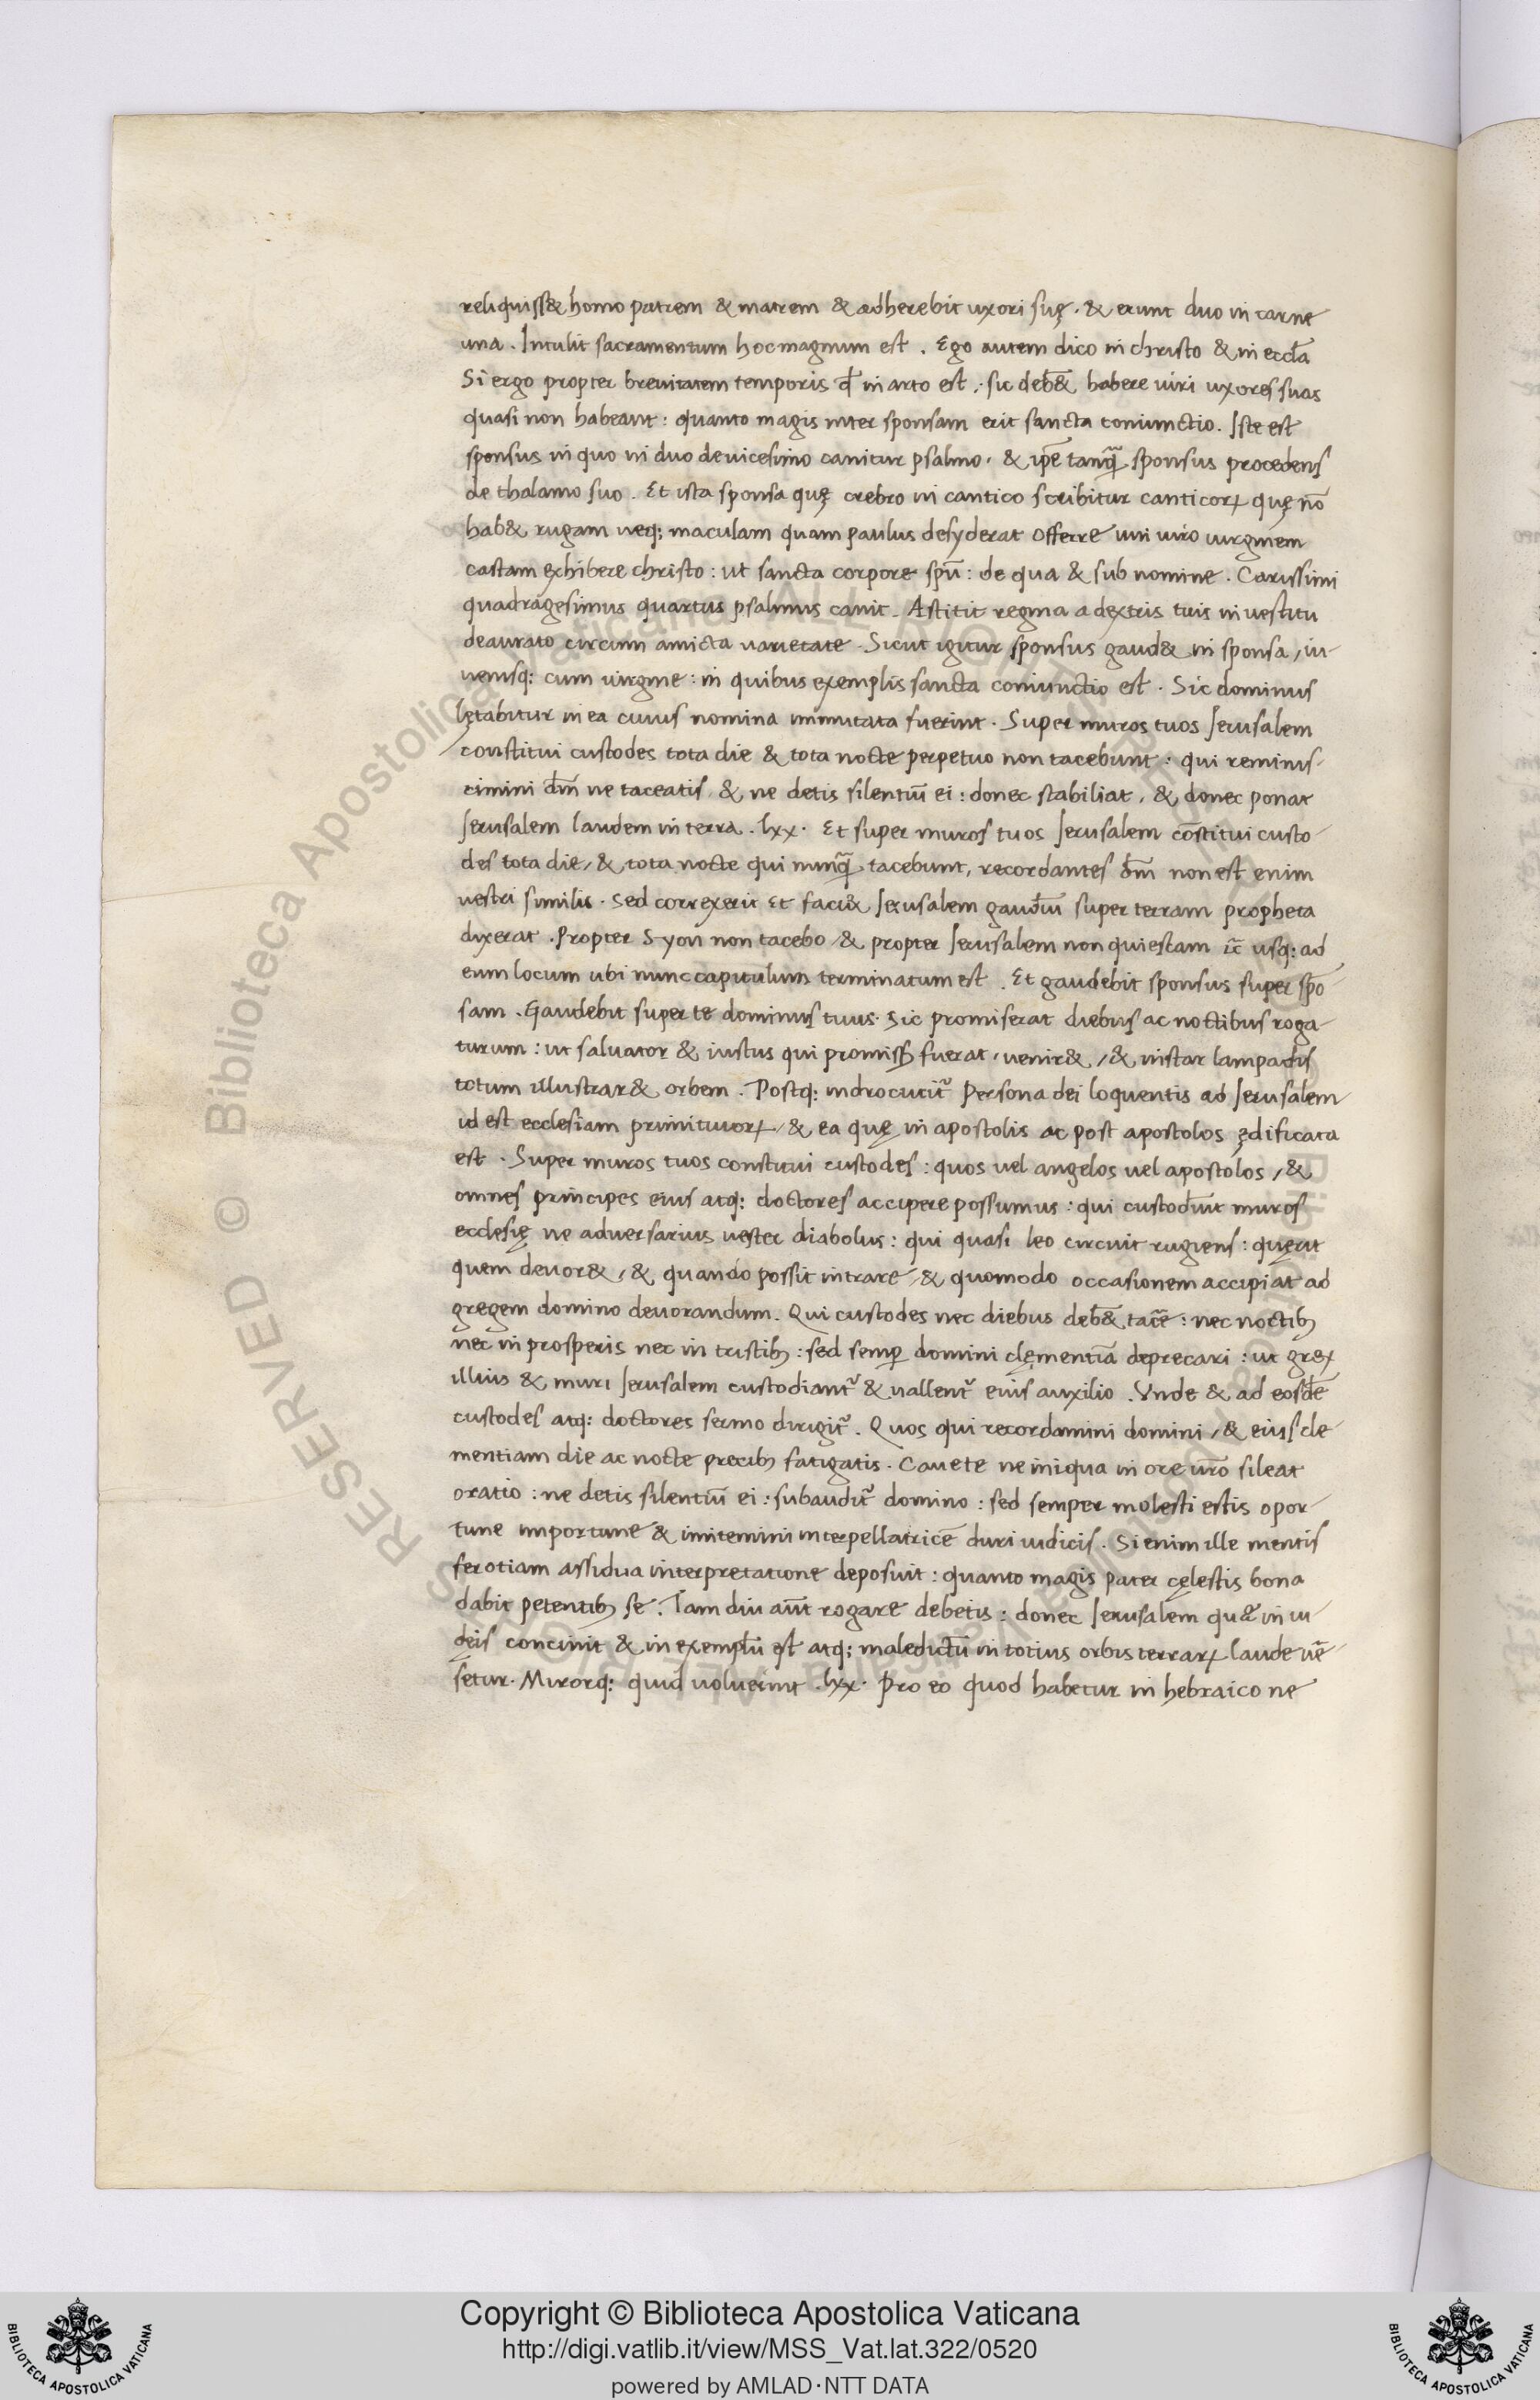 reliquiss& homo patrem & matrem & adherebit uxori suę. & erunt duo in carne
una. Intulit sacramentum hoc magnum est. Ego autem dico in christo & in eccl̄a
Si ergo propter breuitatem temporis qđ in arto est: sic deb& habere uiri uxores suas
quasi non habeant: quanto magis inter sponsam erit sancta coniunctio. Iste est
sponsus in quo in duodeuicesimo canitur psalmo. & ip̄e tanq̄ sponsus procedens
de thalamo suo. Et ista sponsa quę crebro in cantico scribitur canticoꝝ quę nō
hab& rugam neq; maculam quam paulus desyderat offerre uni uiro uirginem
castam exhibere christo: ut sancta corpore & spū: de qua & sub nomine. Carissimi
quadragesimus quartus psalmus canit. Astitit regina a dextris tuis in uestitu
deaurato circum amicta uarietate. Sicut igitur sponsus gaud& in sponsa, iu-
uenisq: cum uirgine: in quibus exemplis sancta coniunctio est. Sic dominus
lętabitur in ea cuius nomina immutata fuerint. Super muros tuos Ierusalem
constitui custodes tota die & tota nocte perpetuo non tacebunt: qui reminis-
cimini dm̄ ne taceatis & ne detis silentiū ei: donec stabiliat, & donec ponat
Ierusalem laudem in terra. lxx. Et super muros tuos Ierusalem cōstitui custo-
des tota die, & tota nocte qui nunq̄ tacebunt, recordantes dm̄ non est enim
uestri similis. Sed correxerit Et faciat Ierusalem gaudiū super terram propheta
dixerat. Propter Syon non tacebo & propter Ierusalem non quiescam &c̄ usq: ad
eum locum ubi nunc capitulum terminatum est. Et gaudebit sponsus super spō-
sam. Gaudebit super te dominus tuus. Sic promiserat diebus ac noctibus roga-
turum: ut saluator & iustus qui promissꝰ fuerat, uenir&, & instar lampadis
totum illustrar& orbem. Postq: indrocucit᷑ Persona dei loquentis ad Ierusalem
id est ecclesiam primitiuoꝝ, & ea quę in apostolis ac post apostolos ędificata
est. Super muros tuos constitui custodes: quos uel angelos uel apostolos, &
omnes principes eius atq: doctores accipere possumus: qui custodiūt muros
ecclesię ne aduersarius uester diabolus: qui quasi leo circuit rugiens: quęrit
quem deuor&, & quando possit intrare & quomodo occasionem accipiat ad
gregem domino deuorandum. Qui custodes nec diebus deb& tacē: nec noctibꝰ
nec in prosperis nec in tristibꝰ: sed semꝑ domini clęmentiā deprecari: ut grex
illius & muri Ierusalem custodiant᷑ & uallent᷑ eius auxilio. Vnde & ad eosdē
custodes atq: doctores sermo dirigit᷑. Quos qui recordamini domini, & eius cle-
mentiam die ac nocte precibꝰ fatigatis. Cauete ne iniqua in ore ur̄o sileat
oratio: ne detis silentiū ei: subaudit᷑ domino: sed semper molesti estis opor-
tune importune & imitemini interpellatricē duri iudicis. Si enim ille mentis
ferotiam assidua interpretatione deposuit: quanto magis pater cęlestis bona
dabit petentibꝰ se. Tam diu aūt rogare debetis: donec Ierusalem quæ in iu-
deis concinit & in exemplū est atq; maledictū in totius orbis terraꝝ laude uē-
setur. Mirorq: quid uoluerint. lxx. Pro eo quod habetur in hebraico ne
Copyright © Biblioteca Apostolica Vaticana
http://digi.vatlib.it/view/MSS_Vat.lat.322/0520
powered by AMLAD·NTT DATA